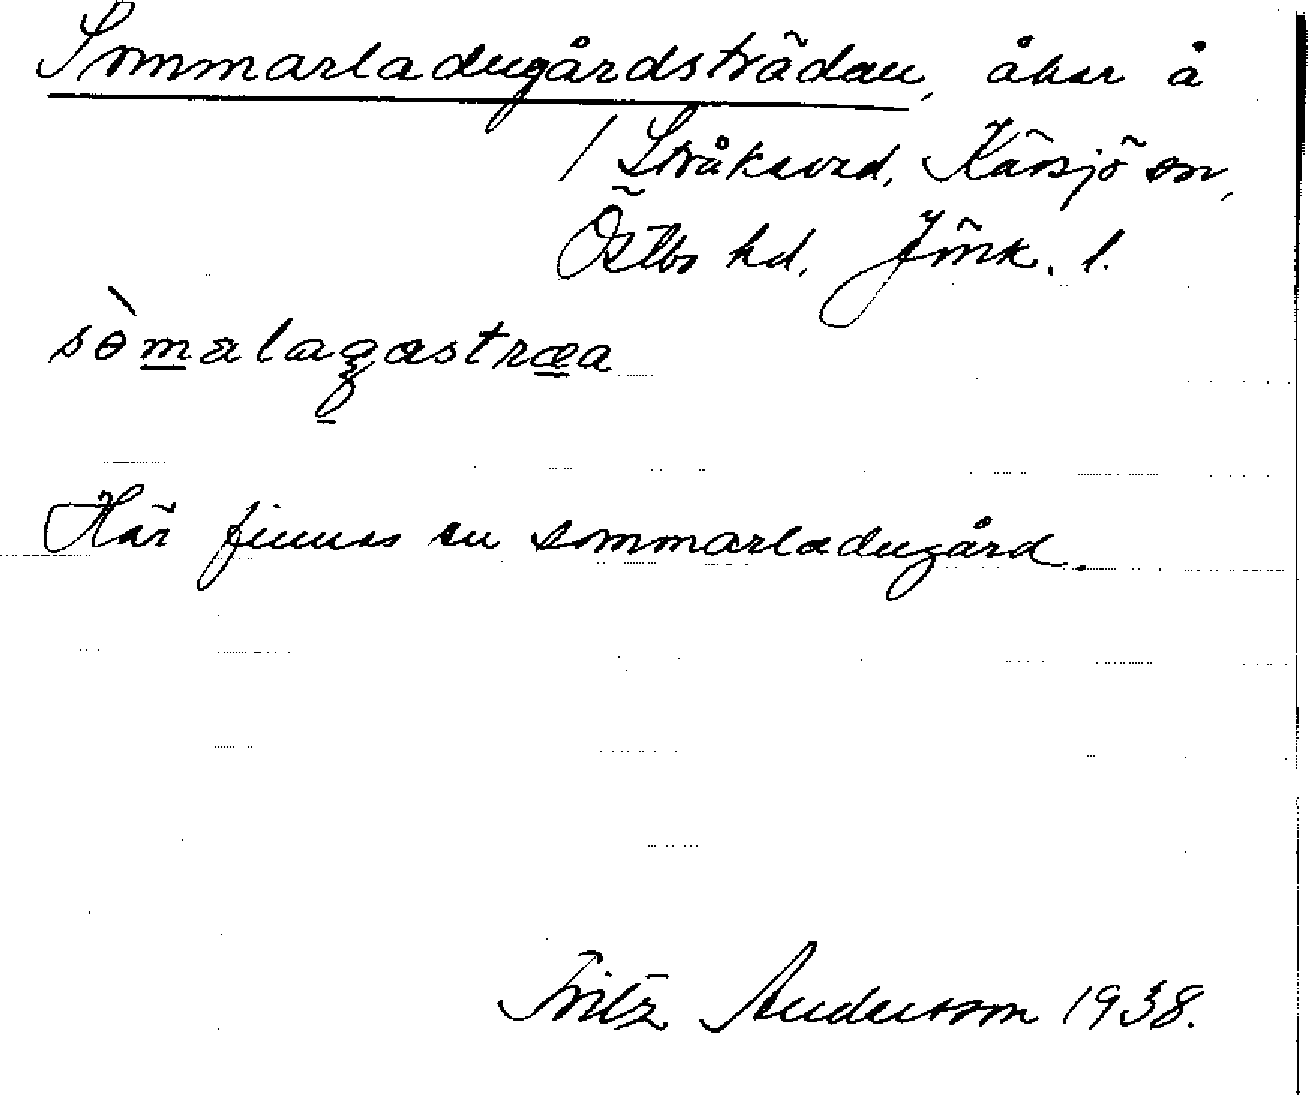 Sommarladugårdsträdan, åker å
1 Stråkeved, Kärsjö sn,
Östbo hd. Jönk. l.
sòmalagastræa
Här finnes en sommarladugård.
Fritz Andersson 1938.